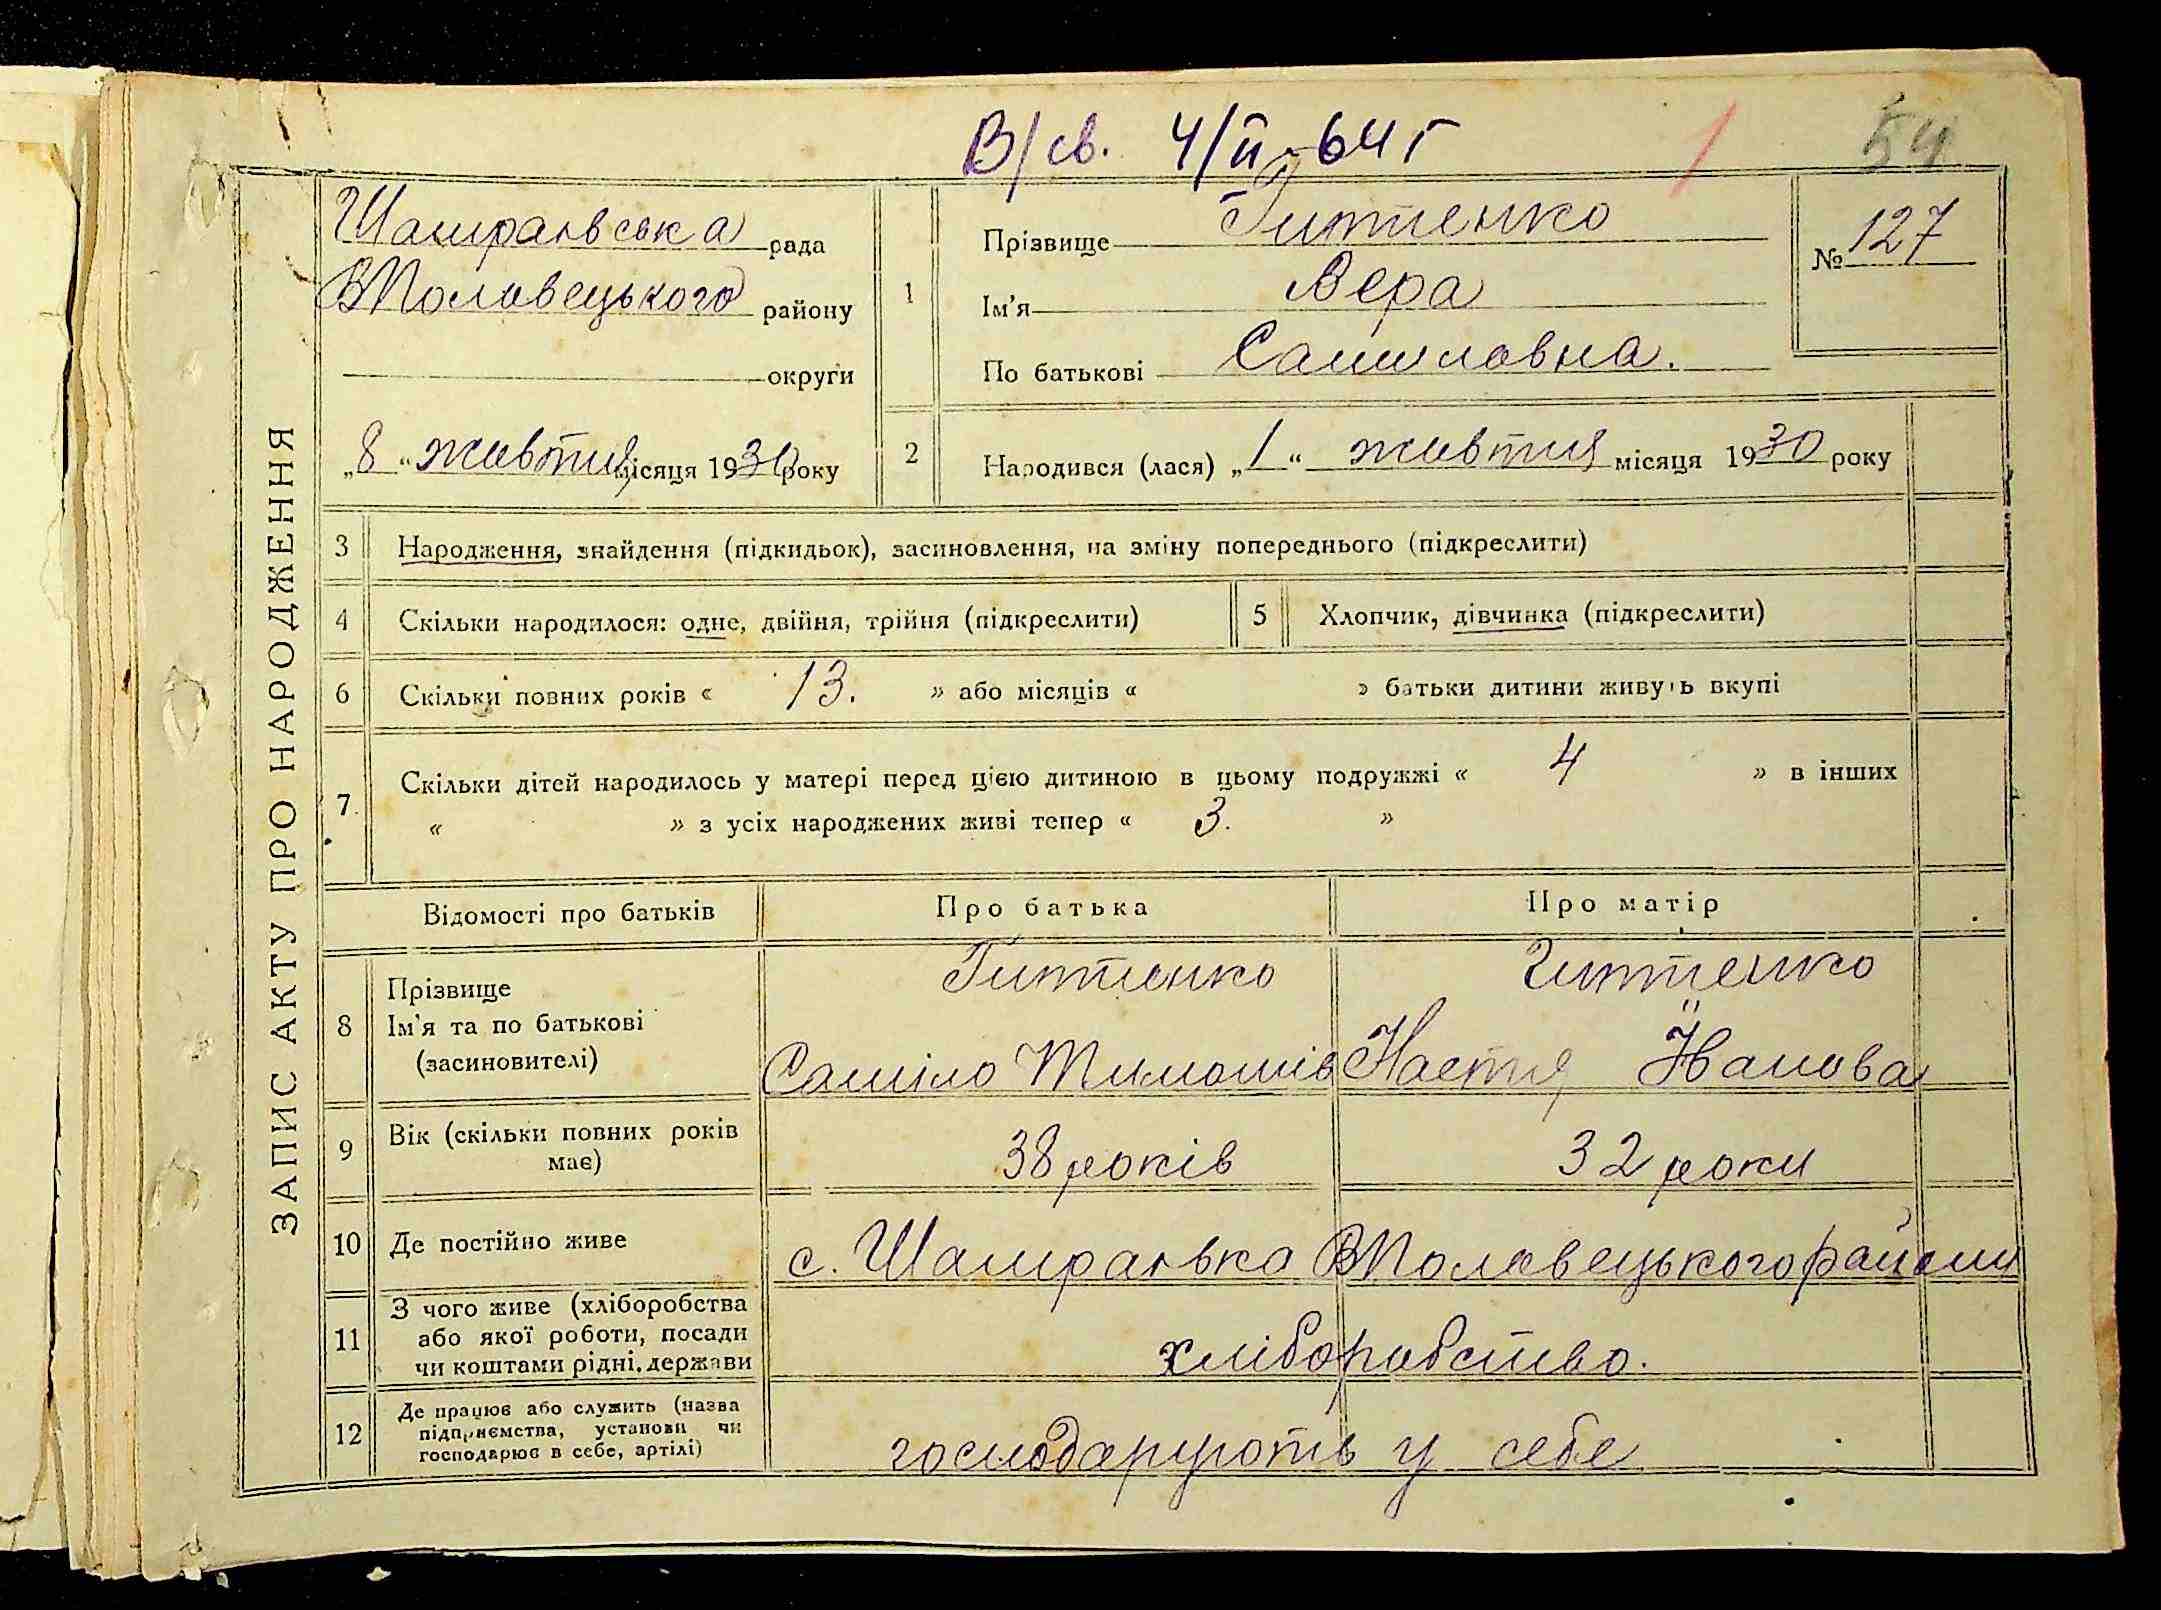 В/св. 4/II-64 г
54
ЗАПИС АКТУ ПРО НАРОДЖЕННЯ
Шамраївська рада
ВПоловецького району
округи
„8“ жовтня місяця 1930 року
1
Прізвище Гитченко
Ім'я Вера
По батькові Самиловна.
№ 127
2
Народився (лася) „1“ жовтня місяця 1930 року
3 Народження, знайдення (підкидьок), засиновлення, на зміну попереднього (підкреслити)
4 Скільки народилося: одне, двійня, трійня (підкреслити)
5 Хлопчик, дівчинка (підкреслити)
6 Скільки повних років « 13. » або місяців « » батьки дитини живуть вкупі
7. Скільки дітей народилось у матері перед цією дитиною в цьому подружжі « 4 » в інших
« » з усіх народжених живі тепер « 3. »
Відомості про батьків Про батька Про матір
8 Прізвище
Ім'я та по батькові
(засиновителі)
Гитченко Гитченко
Саміло Тимошів Настя Йванова
9 Вік (скільки повних років має)
38 років 32 роки
10 Де постійно живе
с. Шамраївка ВПоловецького району
11 З чого живе (хліборобства
або якої роботи, посади
чи коштами рідні. держави
хліборобство.
12 Де працює або служить (назва
підприємства, установи чи
господарює в себе, артілі)
господарують у себе